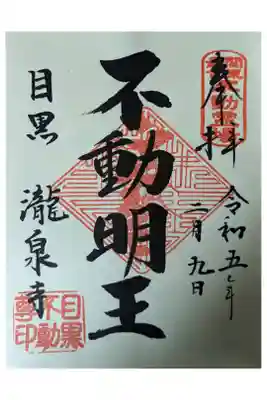 奉拝
令和五年
二月九日
不動明王
目黒 瀧泉寺
目黒
不動
尊印